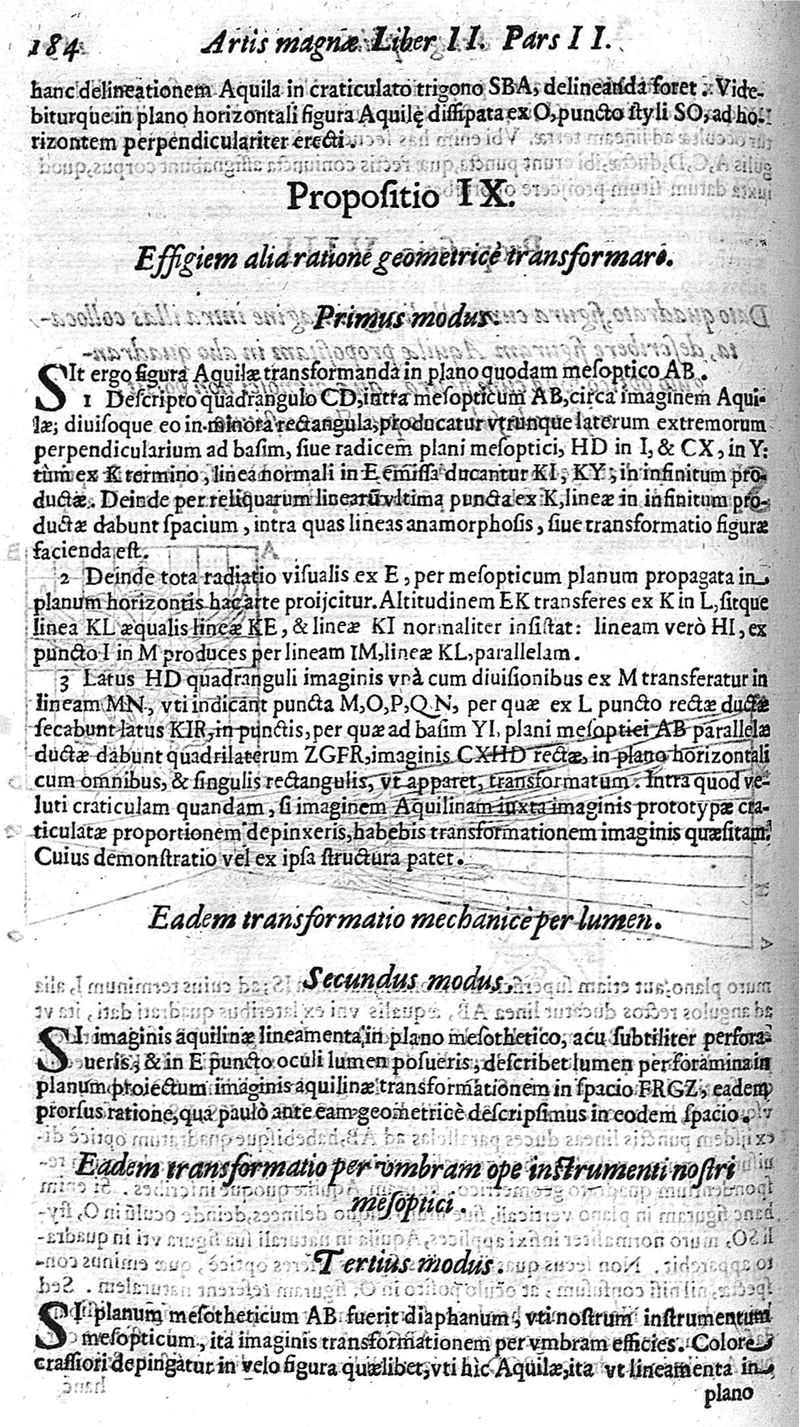 184 Artis magnæ Liber II. Pars II.
hanc delineationem Aquila in craticulato trigono SBA, delineanda foret. Vide-
biturque in plano horizontali figura Aquilę dissipata ex O, puncto styli SO, ad ho-
rizontem perpendiculariter erecti.
Propositio IX.
Effigiem alia ratione geometricè transformare.
Primus modus.
SIt ergo figura Aquilæ transformanda in plano quodam mesoptico AB.
1 Descripto quadrangulo CD, intra mesopticum AB, circa imaginem Aqui-
læ; diuisoque eo in minora rectangula, producatur vtrunque laterum extremorum
perpendicularium ad basim, siue radicem plani mesoptici, HD in I, & CX, in Y:
tùm ex K termino, linea normali in E emissa ducantur KI, KY; in infinitum pro-
ductæ. Deinde per reliquarum linearũ vltima puncta ex K, lineæ in infinitum pro-
ductæ dabunt spacium, intra quas lineas anamorphosis, siue transformatio figuræ
facienda est.
2 Deinde tota radiatio visualis ex E, per mesopticum planum propagata in
planum horizontis hac arte proijcitur. Altitudinem EK transferes ex K in L, sitque
linea KL æqualis lineæ KE, & lineæ KI normaliter insistat: lineam verò HI, ex
puncto I in M produces per lineam IM, lineæ KL, parallelam.
3 Latus HD quadranguli imaginis vnà cum diuisionibus ex M transferatur in
lineam MN, vti indicant puncta M, O, P, Q, N, per quæ ex L puncto rectæ ductæ
secabunt latus KIR, in punctis, per quæ ad basim YI, plani mesoptici AB parallelæ
ductæ dabunt quadrilaterum ZGFR, imaginis CXHD rectæ, in plano horizontali
cum omnibus, & singulis rectangulis, vt apparet, transformatum. Intra quod ve-
luti craticulam quandam, si imaginem Aquilinam iuxta imaginis prototypæ cra-
ticulatæ proportionem depinxeris, habebis transformationem imaginis quæsitam.
Cuius demonstratio vel ex ipsa structura patet.
Eadem transformatio mechanicè per lumen.
Secundus modus.
SI imaginis aquilinæ lineamenta, in plano mesothetico, acu subtiliter perfora-
ueris; & in E puncto oculi lumen posueris, describet lumen per foramina in
planum proiectum imaginis aquilinæ transformationem in spacio FRGZ, eadem
prorsus ratione, qua paulò ante eam geometricè descripsimus in eodem spacio.
Eadem transformatio per vmbram ope instrumenti nostri
mesoptici.
Tertius modus.
SI planum mesotheticum AB fuerit diaphanum, vti nostrum instrumentum
mesopticum, ita imaginis transformationem per vmbram efficies. Colore
crassiori depingatur in velo figura quælibet, vti hic Aquilæ, ita vt lineamenta in
plano